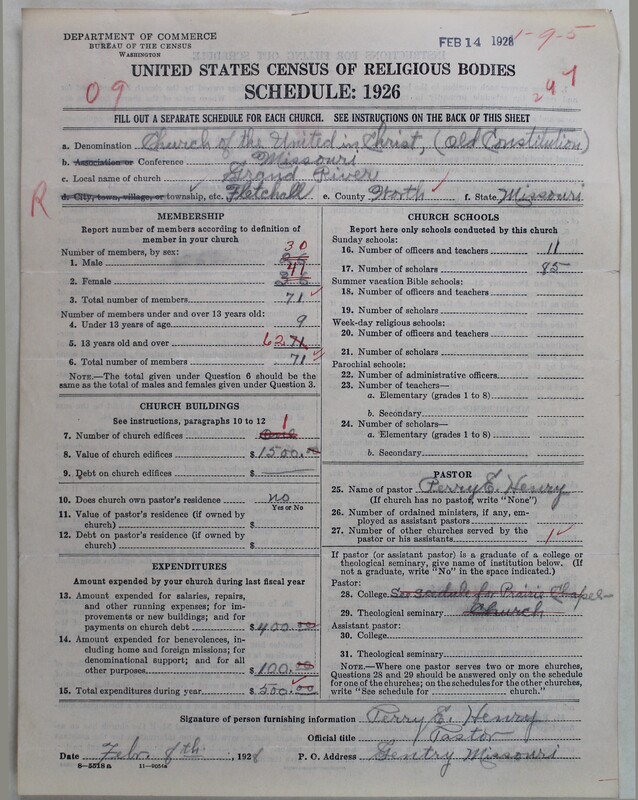 DEPARTMENT OF COMMERCE
BUREAU OF THE CENSUS
WASHINGTON
FEB 14 1928
1-9-5
09
247
UNITED STATES CENSUS OF RELIGIOUS BODIES
SCHEDULE: 1926
FILL OUT A SEPARATE SCHEDULE FOR EACH CHURCH. SEE INSTRUCTIONS ON THE BACK OF THIS SHEET
a. Denomination Church of the United in Christ, (Old Constitution)
b. Association or Conference Missouri
c. Local name of church Grand River
R
d. City, town, village, or township, etc. Fletchall e. County Worth f. State Missouri
MEMBERSHIP
Report number of members according to definition of
member in your church
Number of members, by sex:
1. Male 30
2. Female 41
3. Total number of members 71
Number of members under and over 13 years old:
4. Under 13 years of age 9
5. 13 years old and over 62 71
6. Total number of members 71
NOTE.—The total given under Question 6 should be
the same as the total of males and females given under Question 3.
CHURCH BUILDINGS
See instructions, paragraphs 10 to 12
7. Number of church edifices 1
8. Value of church edifices $1500.00
9. Debt on church edifices $
10. Does church own pastor's residence no
Yes or No
11. Value of pastor's residence (if owned by
church) $
12. Debt on pastor's residence (if owned by
church) $
EXPENDITURES
Amount expended by your church during last fiscal year
13. Amount expended for salaries, repairs,
and other running expenses; for im-
provements or new buildings; and for
payments on church debt $400.00
14. Amount expended for benevolences, in-
cluding home and foreign missions; for
denominational support; and for all
other purposes $100.00
15. Total expenditures during year $500.00
CHURCH SCHOOLS
Report here only schools conducted by this church
Sunday schools:
16. Number of officers and teachers 11
17. Number of scholars 85
Summer vacation Bible schools:
18. Number of officers and teachers
19. Number of scholars
Week-day religious schools:
20. Number of officers and teachers
21. Number of scholars
Parochial schools:
22. Number of administrative officers
23. Number of teachers—
a. Elementary (grades 1 to 8)
b. Secondary
24. Number of scholars—
a. Elementary (grades 1 to 8)
b. Secondary
PASTOR
25. Name of pastor Perry E. Henry
(If church has no pastor, write "None")
26. Number of ordained ministers, if any, em-
ployed as assistant pastors
27. Number of other churches served by the
pastor or his assistants 1
If pastor (or assistant pastor) is a graduate of a college or
theological seminary, give name of institution below. (If
not a graduate, write "No" in the space indicated.)
Pastor:
28. College See scedule for Prairie Chapel
29. Theological seminary Church
Assistant pastor:
30. College
31. Theological seminary
NOTE.—Where one pastor serves two or more churches,
Questions 28 and 29 should be answered only on the schedule
for one of the churches; on the schedules for the other churches,
write "See schedule for ________ church."
Signature of person furnishing information Perry E. Henry
Official title Pastor
Date Feb. 8th, 1928 P. O. Address Gentry Missouri
8—5518 a 11—9054a